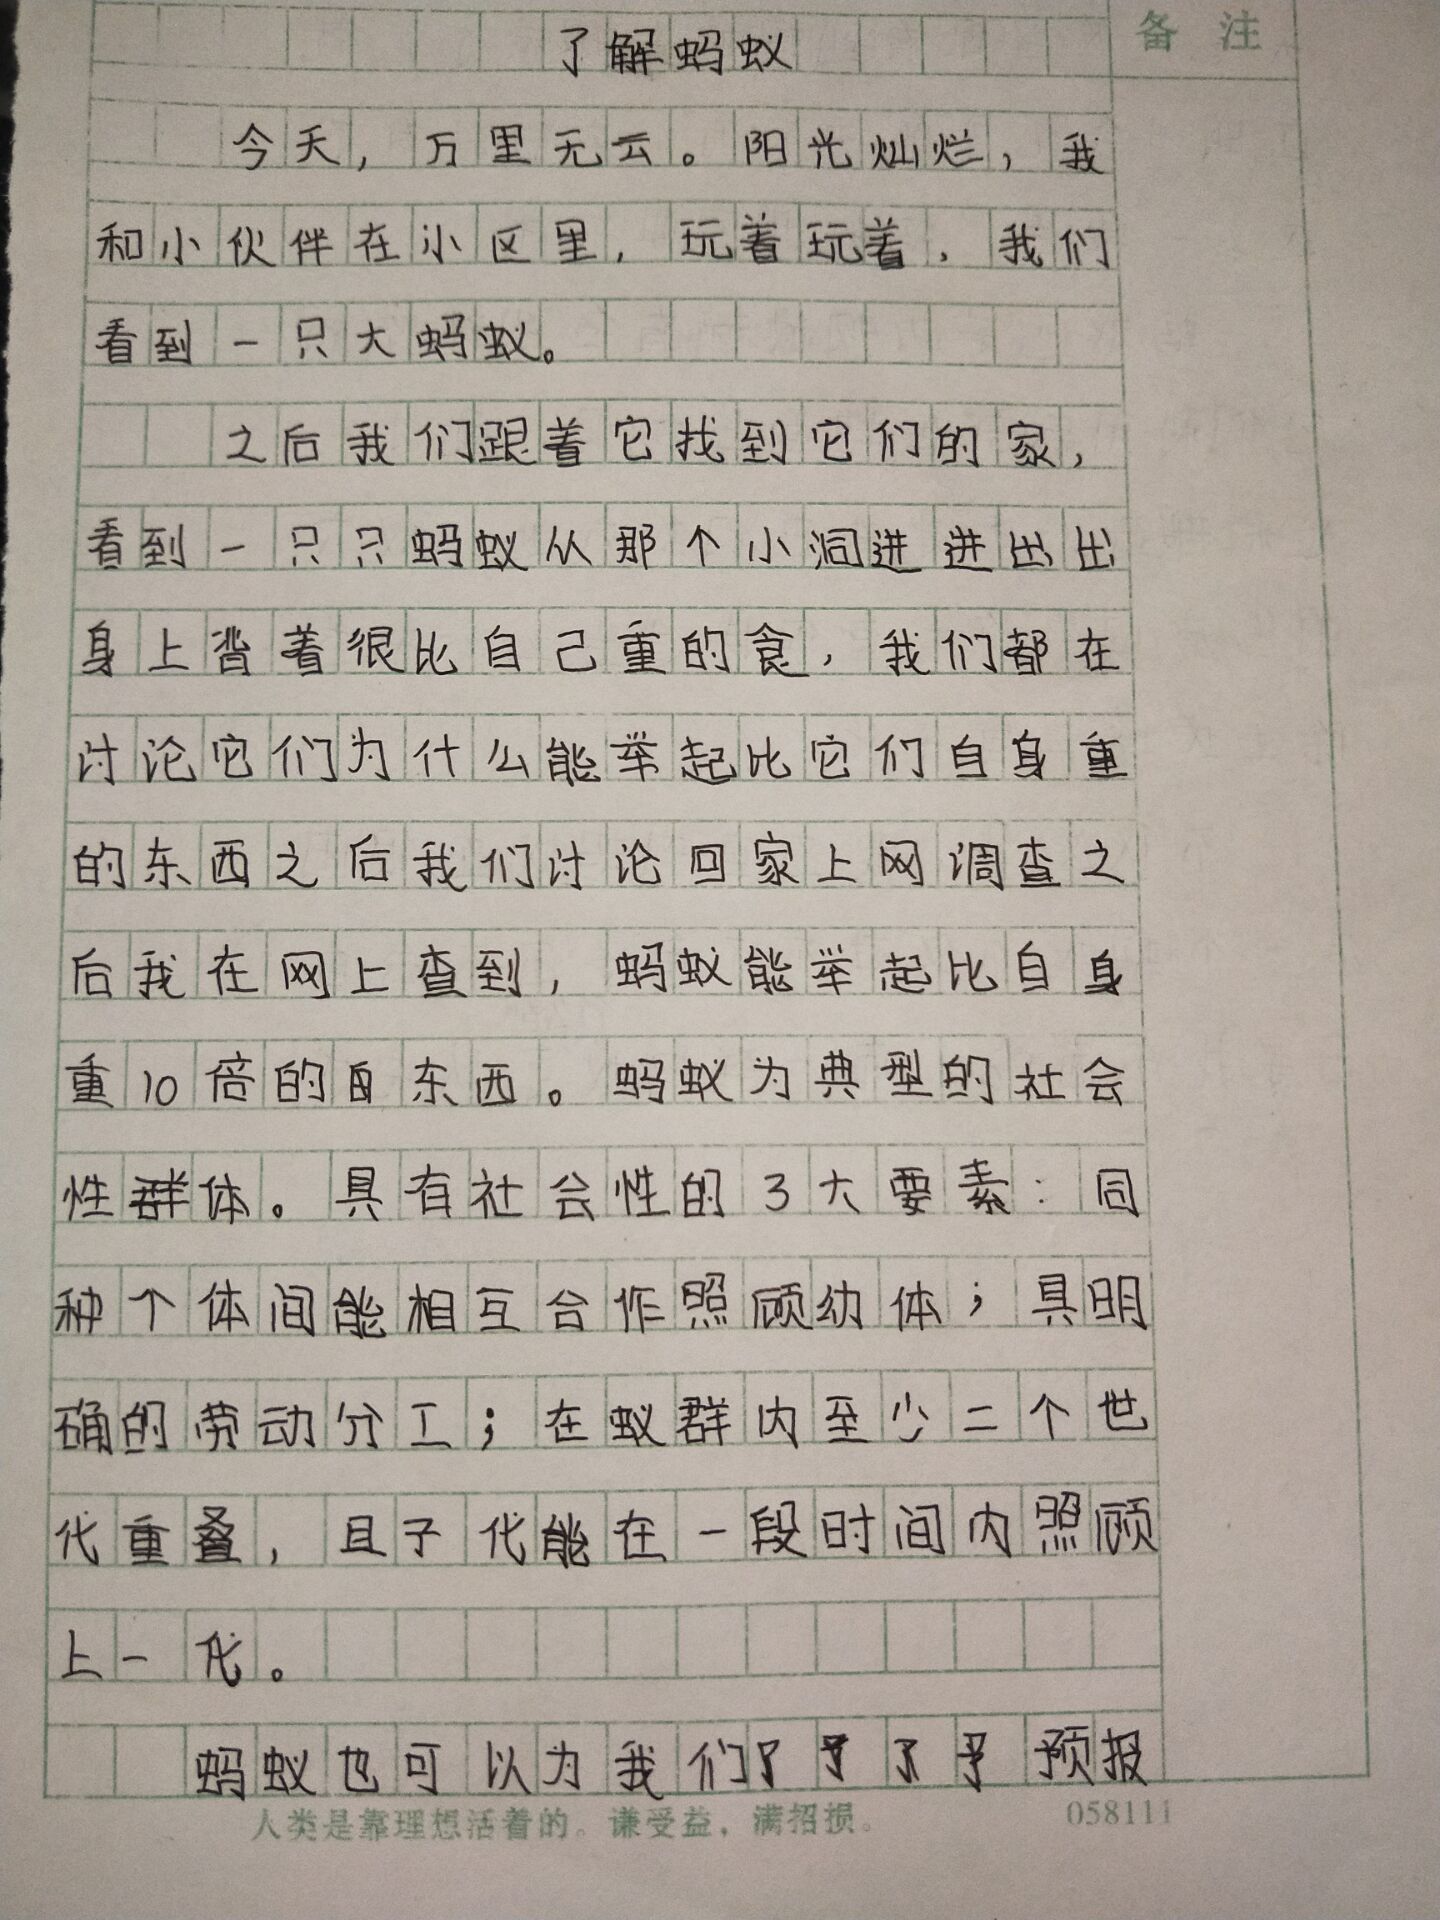 备注
了解蚂蚁
今天，万里无云。阳光灿烂，我
和小伙伴在小区里，玩着玩着，我们
看到一只大蚂蚁。
之后我们跟着它找到它们的家，
看到一只只蚂蚁从那个小洞进进出出
身上背着很比自己重的食，我们都在
讨论它们为什么能举起比它们自身重
的东西之后我们讨论回家上网调查之
后我在网上查到，蚂蚁能举起比自身
重10倍的东西。蚂蚁为典型的社会
性群体。具有社会性的3大要素：同
种个体间能相互合作照顾幼体；具明
确的劳动分工；在蚁群内至少二个世
代重叠，且子代能在一段时间内照顾
上一代。
蚂蚁也可以为我们预报
人类是靠理想活着的。谦受益，满招损。
058111